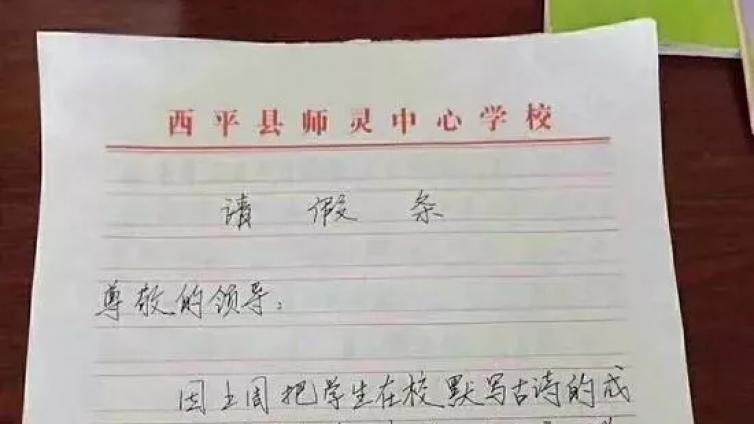 西平县师灵中心学校
请假条
尊敬的领导：
因上周把学生在校默写古诗的成